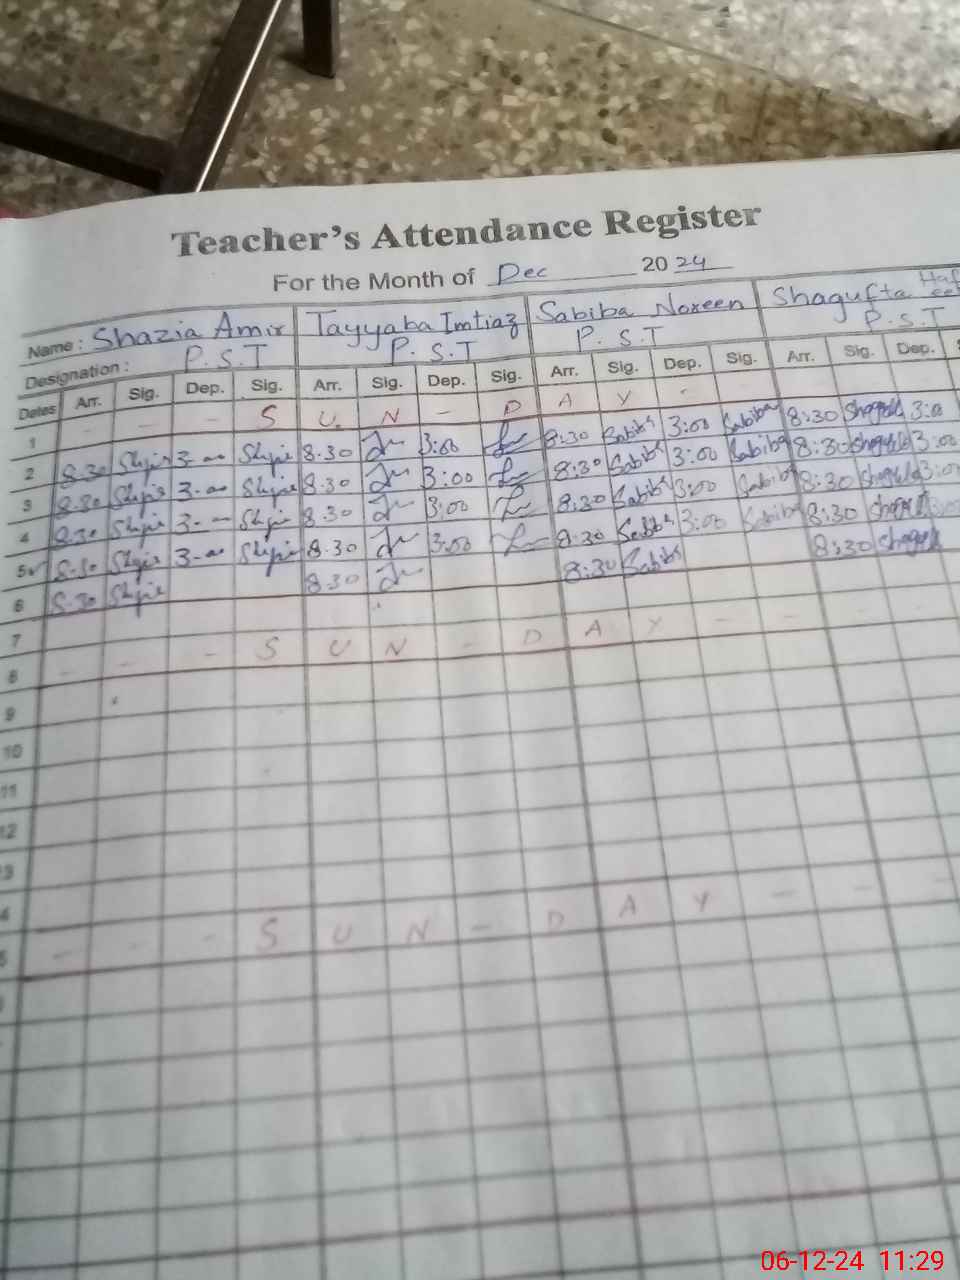 Teacher's Attendance Register
For the Month of Dec 2024
Name: Shazia Amir Tayyaba Imtiaz Sabiba Noreen Shagufta
Designation: P.S.T P.S.T P.S.T P.S.T
Dates Arr. Sig. Dep. Sig. Arr. Sig. Dep. Sig. Arr. Sig. Dep. Sig. Arr. Sig. Dep.
1 - - - S U N - D A Y -
2 8.30 3-00 8.30 3:00 8:30 Sabiba 3:00 Sabiba 8:30 3:0
3 8.30 3-00 8.30 3:00 8:30 Sabiba 3:00 Sabiba 8:30 3:00
4 8.30 3-00 8.30 3:00 8:30 Sabiba 3:00 Sabiba 8:30 3:00
5 8.30 3-00 8.30 3:00 8:30 Sabiba 3:00 Sabiba 8:30
6 8.30 8.30 8:30 Sabiba 8:30
7
8 - - - S U N - D A Y - - -
9
10
11
12
3
4
5 - - - S U N - D A Y - - -
06-12-24 11:29